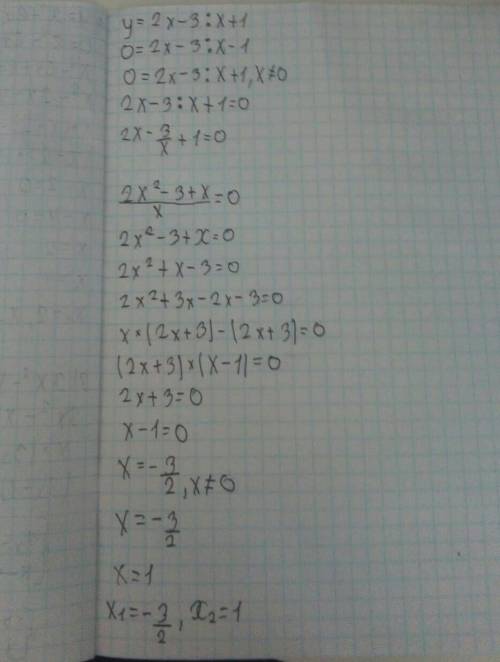 y=2x-3:x+1
0=2x-3:x-1
0=2x-3:x+1,x≠0
2x-3:x+1=0
2x-3/x+1=0
(2x²-3+x)/x=0
2x²-3+x=0
2x²+x-3=0
2x²+3x-2x-3=0
x×(2x+3)-(2x+3)=0
(2x+3)×(x-1)=0
2x+3=0
x-1=0
x=-3/2,x≠0
x=-3/2
x=1
x1=-3/2, x2=1